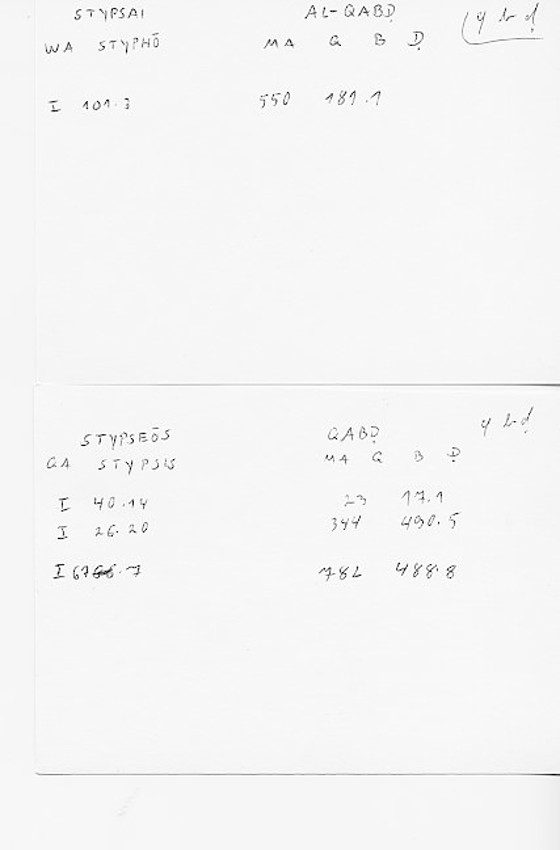 STYPSAI AL-QABḌ q b ḍ
WA STYPHŌ MA Q B Ḍ
I 101.3 550 181.1
STYPSEŌS QABḌ q b ḍ
GA STYPSIS MA Q B Ḍ
I 40.14 23 17.1
I 26.20 344 490.5
I 67.7 782 488.8